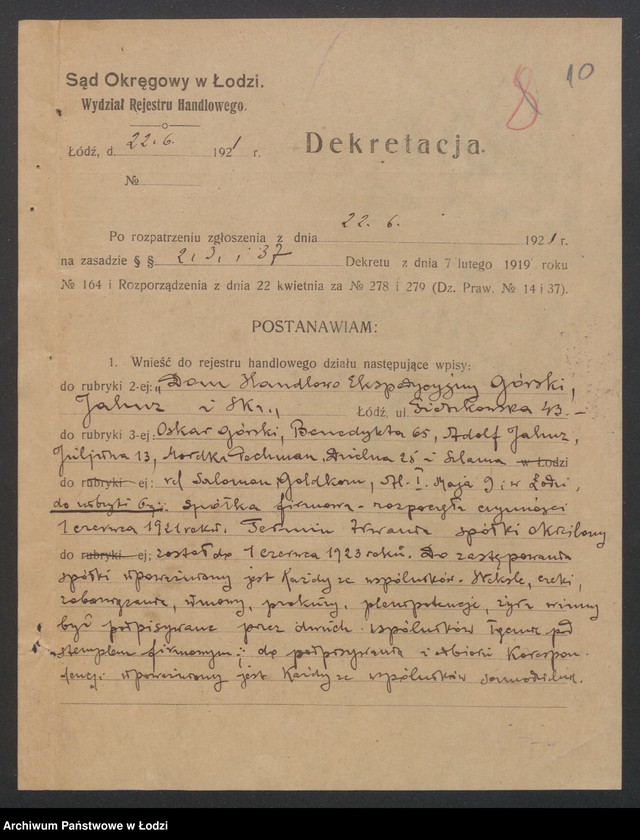 10
8
Sąd Okręgowy w Łodzi.
Wydział Rejestru Handlowego.
Łódź, d. 22.6. 1921 r.
Dekretacja.
№
Po rozpatrzeniu zgłoszenia z dnia 22. 6. 1921 r.
na zasadzie § § 2, 3, i 37 Dekretu z dnia 7 lutego 1919 roku
№ 164 i Rozporządzenia z dnia 22 kwietnia za № 278 i 279 (Dz. Praw. № 14 i 37).
POSTANAWIAM:
1. Wnieść do rejestru handlowego działu następujące wpisy:
do rubryki 2-ej: „Dom Handlowo Ekspedycyjny Górski,
i Ska., Łódź, ul. Piotrkowska 43. –
do rubryki 3-ej: Oskar Górski, Benedykta 65, Adolf
Juljusza 13, Mordka 25 i w Łodzi
do rubryki ej: Salomon Goldkorn, I. Maja 9; w Łodzi,
do rubryki 6ej: Spółka firmowa – rozpoczęła czynności
1 czerwca 1921 roku. Termin trwania spółki określony
do rubryki ej; został do 1 czerwca 1923 roku. Do zastępowania
spółki upoważniony jest każdy ze wspólników. Weksle, czeki,
zobowiązania, umowy, prokury, plenipotencje, żyra winny
być podpisywane przez dwóch wspólników łącznie pod
stemplem firmowym; do podpisywania i odbioru korespon-
dencji upoważniony jest każdy ze wspólników samodzielnie.
Archiwum Państwowe w Łodzi